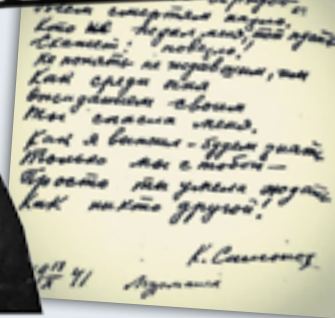 всем смертям назло.
Кто не ждал меня, тот пусть
Скажет: повезло.
Не понять не ждавшим, им
Как среди огня
Ожиданием своим
Ты спасла меня.
Как я выжил – будем знать
Только мы с тобой –
Просто ты умела ждать
Как никто другой!
К. Симонов
41